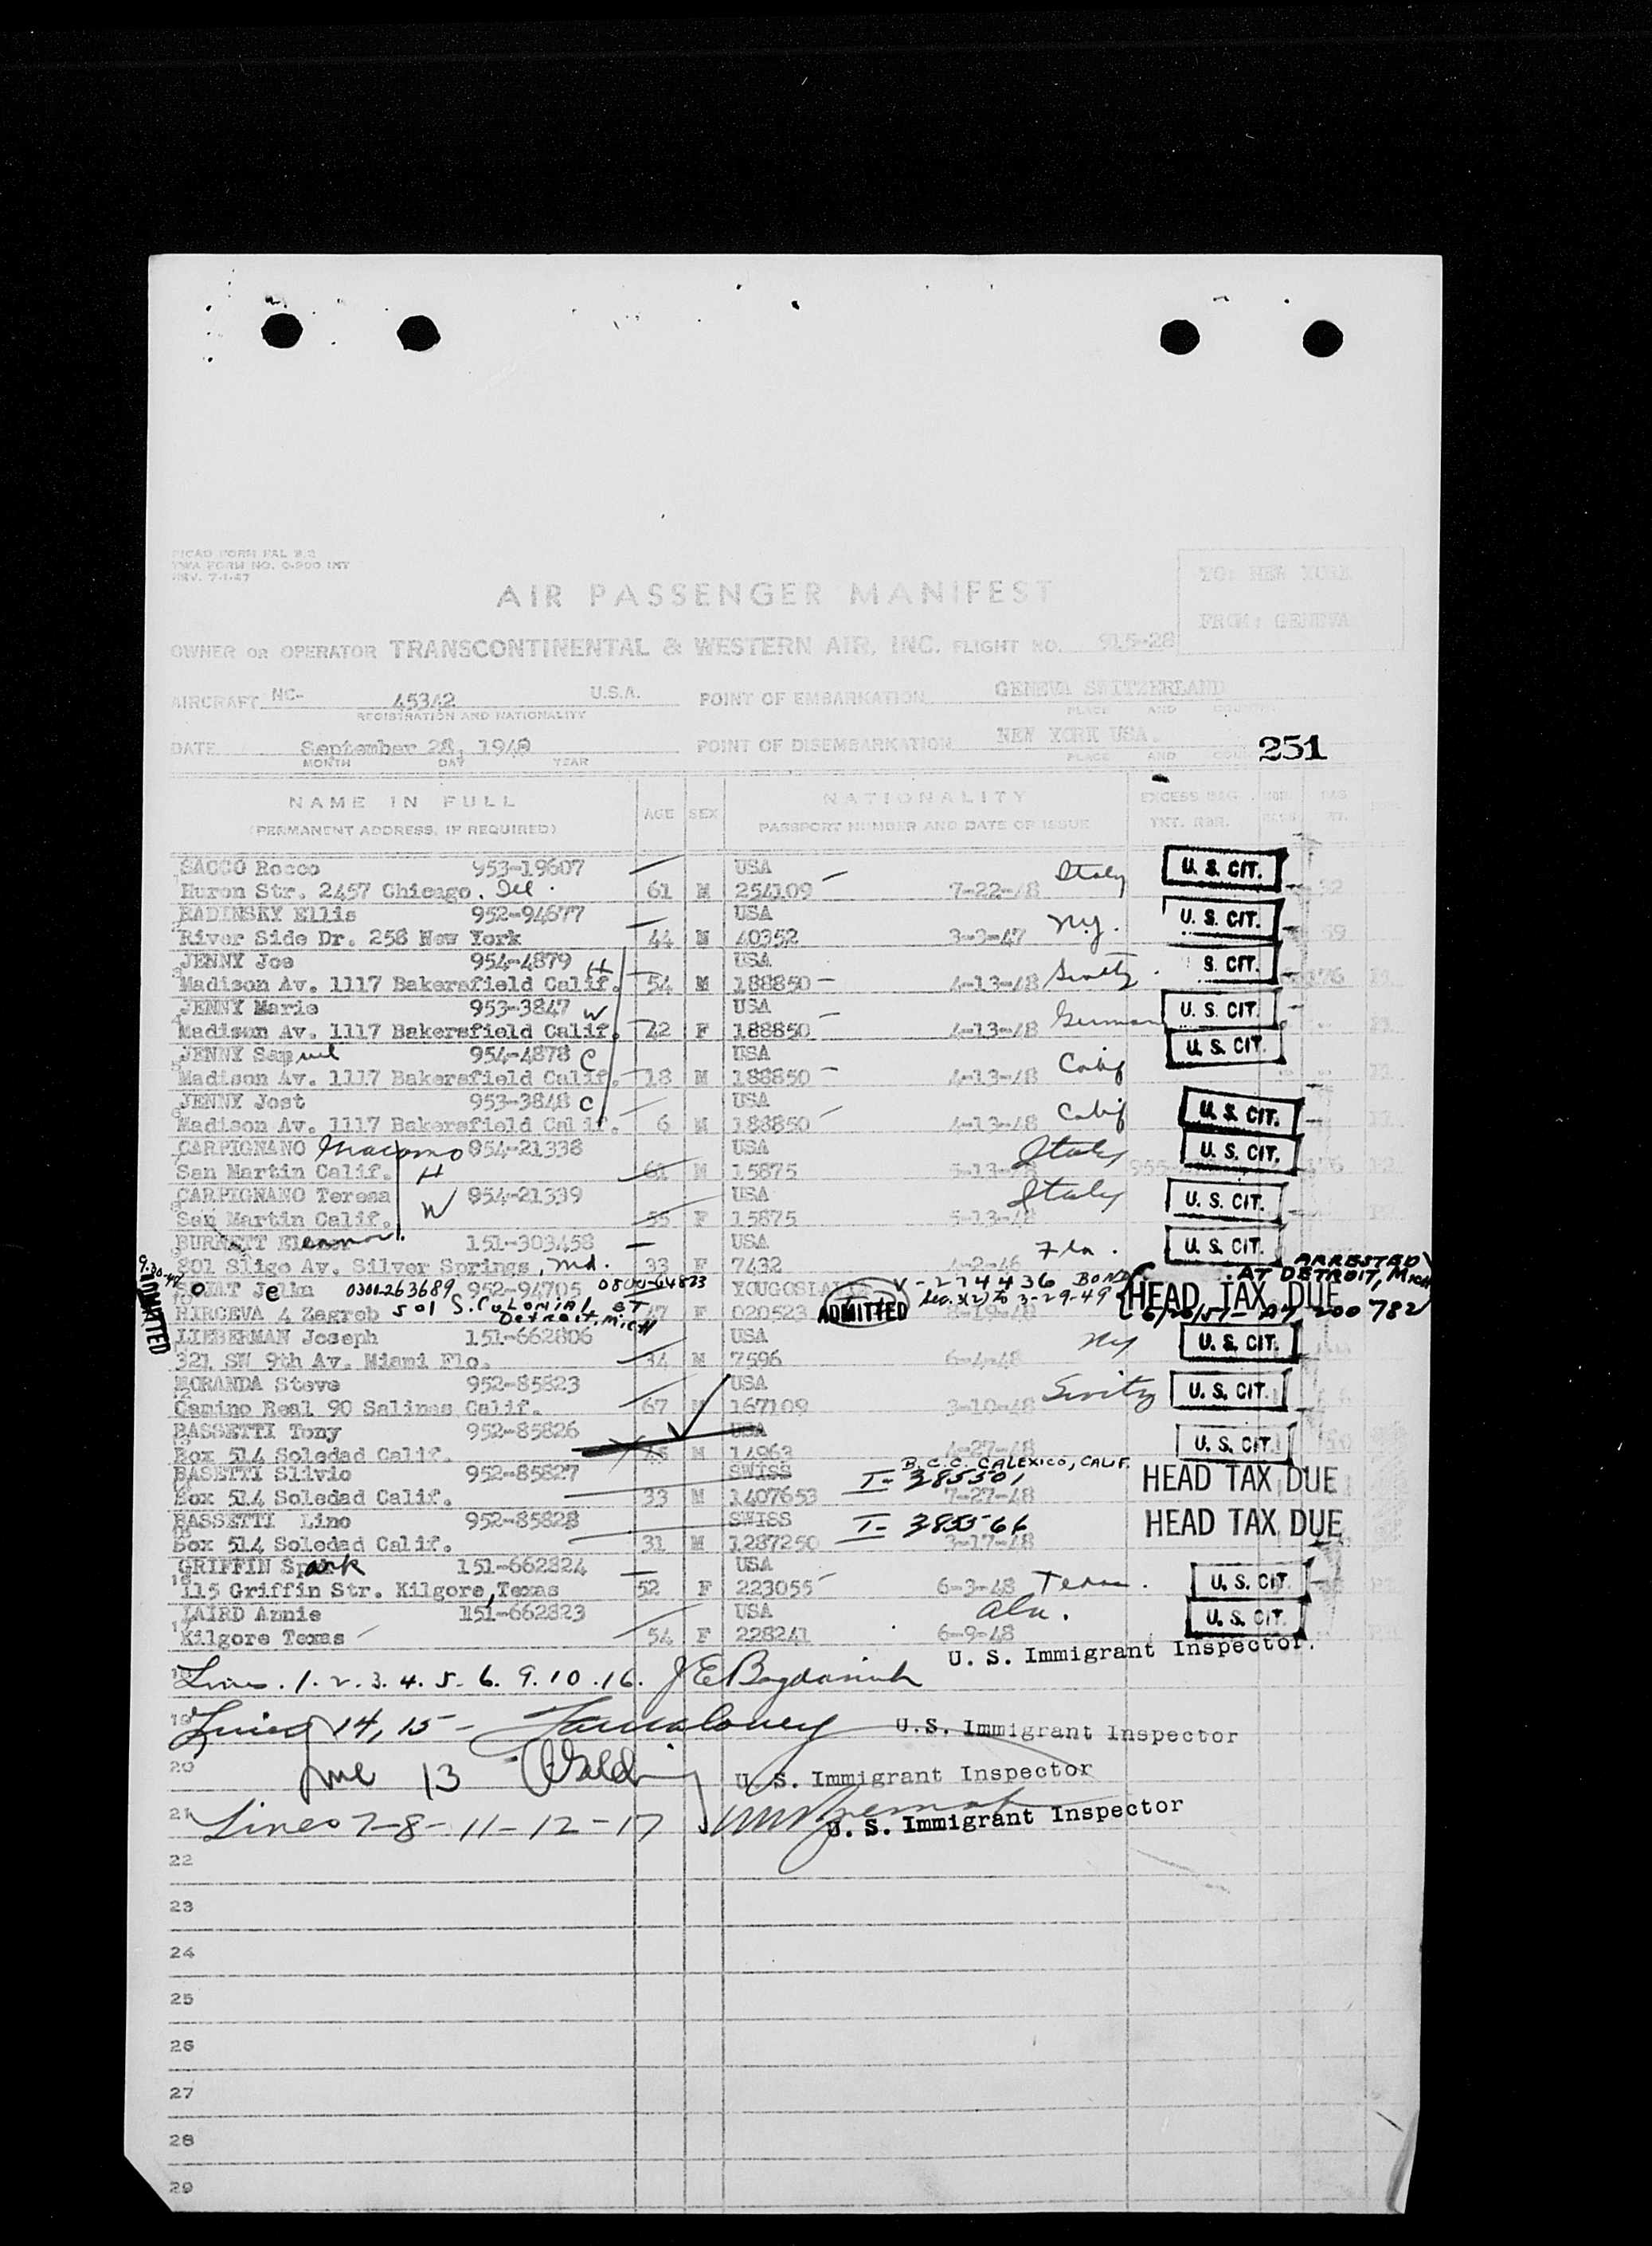 PICAO FORM PAL 8.2
TWA FORM NO. 0-900 INT
REV. 7-1-47
TO: NEW YORK
FROM: GENEVA
AIR PASSENGER MANIFEST
OWNER OR OPERATOR TRANSCONTINENTAL & WESTERN AIR, INC. FLIGHT NO. 915-28
AIRCRAFT NC- 45342 U.S.A. POINT OF EMBARKATION GENEVA SWITZERLAND
REGISTRATION AND NATIONALITY PLACE AND
DATE September 28, 1948 POINT OF DISEMBARKATION NEW YORK USA. 251
MONTH DAY YEAR PLACE AND
NAME IN FULL AGE SEX NATIONALITY EXCESS BAG
(PERMANENT ADDRESS, IF REQUIRED) PASSPORT NUMBER AND DATE OF ISSUE TKT. NBR.
SACCO Rocco 953-19607 USA Italy U. S. CIT.
Huron Str. 2457 Chicago. Ill. 61 M 254109 7-22-48
RADINSKY Ellis 952-94677 USA N.Y. U. S. CIT.
River Side Dr. 258 New York 44 M 40352 3-3-47
JENNY Joe 954-4879 H USA S. CIT.
Madison Av. 1117 Bakersfield Calif. 54 M 188850 4-13-48
JENNY Marie 953-3847 W USA German U. S. CIT.
Madison Av. 1117 Bakersfield Calif. 42 F 188850 4-13-48
JENNY Samuel 954-4878 C USA Calif U. S. CIT.
Madison Av. 1117 Bakersfield Calif. 18 M 188850 4-13-48
JENNY Jost 953-3848 C USA Calif U. S. CIT.
Madison Av. 1117 Bakersfield Calif. 6 M 188850 4-13-48
CARPIGNANO Giacomo 954-21338 USA Italy U. S. CIT.
San Martin Calif. H 61 M 15875 5-13-48
CARPIGNANO Teresa W 954-21339 USA Italy U. S. CIT.
San Martin Calif. 55 F 15875 5-13-48
BURNETT Eleanor 151-303458 USA Fla. U. S. CIT.
801 Sligo Av. Silver Springs, Md. 33 F 7432 4-2-46 ARRESTED
9-30-48 ADMITTED Jelka 0300263689 952-94705 0800-64823 YOUGOSLAVIA V-274436 BOND HEAD TAX DUE AT DETROIT, MICH
HIRCEVA 4 Zagreb 501 S. COLONIAL ST 47 F 020523 ADMITTED Sec. 3(2) to 3-29-49 8-19-48 6/20/51
DETROIT, MICH
LIEBERMAN Joseph 151-662806 USA NY U. S. CIT.
321 SW 9th Av. Miami Flo. 34 M 7596 6-4-48
MORANDA Steve 952-85823 USA Switz U. S. CIT.
Camino Real 90 Salinas Calif. 67 M 167109 3-10-48
BASSETTI Tony 952-85826 USA U. S. CIT.
Box 514 Soledad Calif. 45 M 14963 4-27-48
B.C.C. CALEXICO, CALIF.
BASETTI Silvio 952-85827 SWISS I-385501 HEAD TAX DUE
Box 514 Soledad Calif. 33 M 1407653 7-27-48
BASSETTI Lino 952-85828 SWISS I-385566 HEAD TAX DUE
Box 514 Soledad Calif. 31 M 1287250 3-17-48
GRIFFIN Spark 151-662824 USA U. S. CIT.
115 Griffin Str. Kilgore, Texas 52 F 223055 6-3-48 Texas.
LAIRD Annie 151-662823 USA Ala. U. S. CIT.
Kilgore Texas 54 F 228241 6-9-48
U. S. Immigrant Inspector.
Lines. 1. 2. 3. 4. 5. 6. 9. 10. 16.
19 Lines 14, 15 - U.S. Immigrant Inspector
20 Line 13 U. S. Immigrant Inspector
21 Lines 7-8-11-12-17 U. S. Immigrant Inspector
22
23
24
25
26
27
28
29